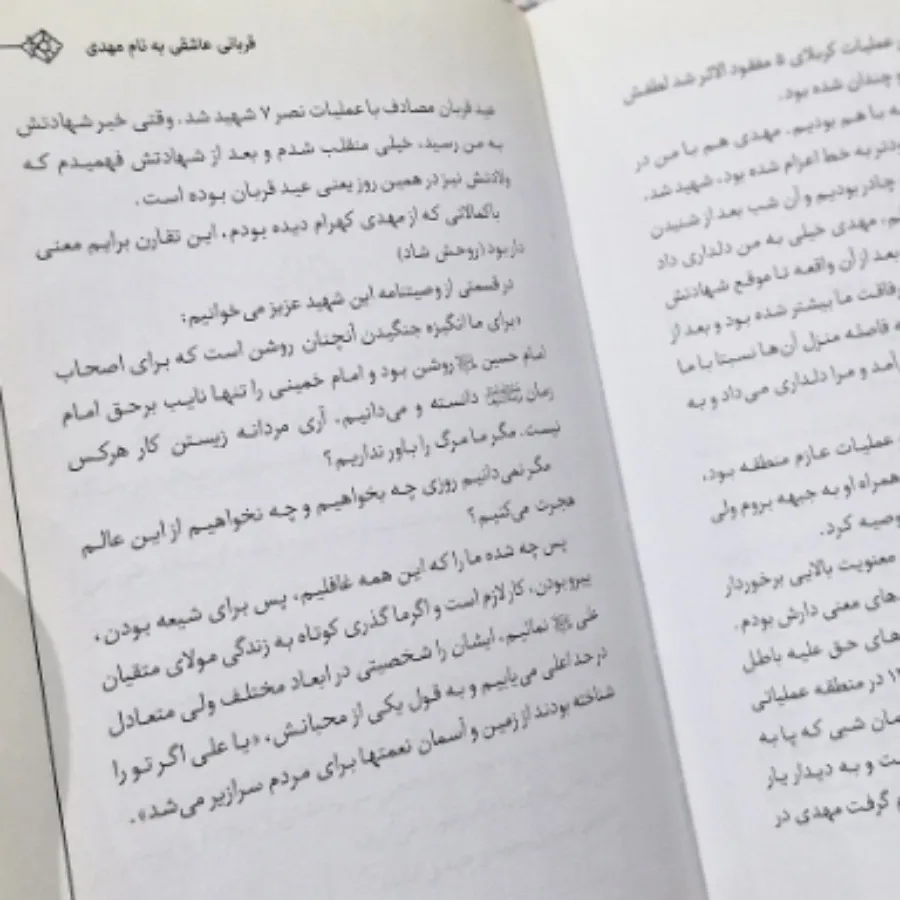 ر عملیات کربلای ۵ مفقود الاثر شد لطفش
و چندان شده بود.
ه با هم بودیم. مهدی هم با من در
ودتر به خط اعزام شده بود، شهید شد.
چادر بودیم و آن شب بعد از شنیدن
م، مهدی خیلی به من دلداری داد
بعد از آن واقعه تا موقع شهادتش
رفاقت ما بیشتر شده بود و بعد از
ه فاصله منزل آن‌ها نسبتا با ما
آمد و مرا دلداری می‌داد و به
عملیات عازم منطقه بود،
همراه او به جبهه بروم ولی
وصیه کرد.
معنویت بالایی برخوردار
های معنی دارش بودم.
های حق علیه باطل
۱۳ در منطقه عملیاتی
مان شبی که پا به
ت و به دیدار یار
م گرفت مهدی در
قربانی عاشقی به نام مهدی
عید قربان مصادف با عملیات نصر ۷ شهید شد. وقتی خبر شهادتش
به من رسید، خیلی منقلب شدم و بعد از شهادتش فهمیدم که
ولادتش نیز در همین روز یعنی عید قربان بوده است.
باکمالاتی که از مهدی کهرام دیده بودم، این تقارن برایم معنی
دار بود (روحش شاد)
در قسمتی از وصیتنامه این شهید عزیز می‌خوانیم:
«برای ما انگیزه جنگیدن آنچنان روشن است که برای اصحاب
امام حسین روشن بود و امام خمینی را تنها نایب برحق امام
زمان دانسته و می‌دانیم. آری مردانه زیستن کار هرکس
نیست. مگر ما مرگ را باور نداریم؟
مگر نمی‌دانیم روزی چه بخواهیم و چه نخواهیم از این عالم
هجرت می‌کنیم؟
پس چه شده ما را که این همه غافلیم، پس برای شیعه بودن،
پیرو بودن، کار لازم است و اگر ما گذری کوتاه به زندگی مولای متقیان
علی نمائیم، ایشان را شخصیتی در ابعاد مختلف ولی متعادل
در حد اعلی می‌یابیم و به قول یکی از محبانش، «یا علی اگر تو را
شناخته بودند از زمین و آسمان نعمتها برای مردم سرازیر می‌شد».